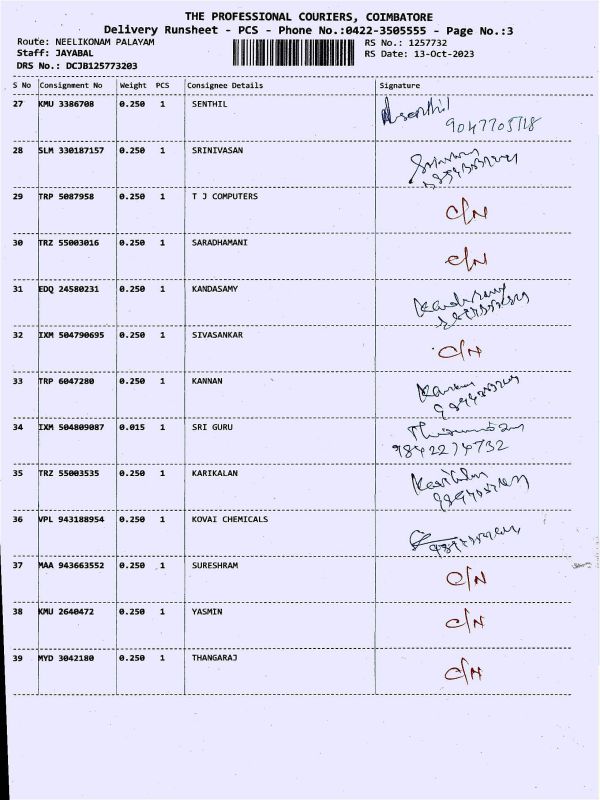 THE PROFESSIONAL COURIERS, COIMBATORE
Delivery Runsheet - PCS - Phone No.:0422-3505555 - Page No.:3
Route: NEELIKONAM PALAYAM RS No.: 1257732
Staff: JAYABAL RS Date: 13-Oct-2023
DRS No.: DCJB125773203
S No Consignment No Weight PCS Consignee Details Signature
27 KMU 3386708 0.250 1 SENTHIL senthil
28 SLM 330187157 0.250 1 SRINIVASAN
29 TRP 5087958 0.250 1 T J COMPUTERS C/N
30 TRZ 55003016 0.250 1 SARADHAMANI C/N
31 EDQ 24580231 0.250 1 KANDASAMY
32 IXM 504790695 0.250 1 SIVASANKAR C/N
33 TRP 6047280 0.250 1 KANNAN
34 IXM 504809087 0.015 1 SRI GURU
9842274732
35 TRZ 55003535 0.250 1 KARIKALAN
36 VPL 943188954 0.250 1 KOVAI CHEMICALS
37 MAA 943663552 0.250 1 SURESHRAM C/N
38 KMU 2640472 0.250 1 YASMIN C/N
39 MYD 3042180 0.250 1 THANGARAJ C/N